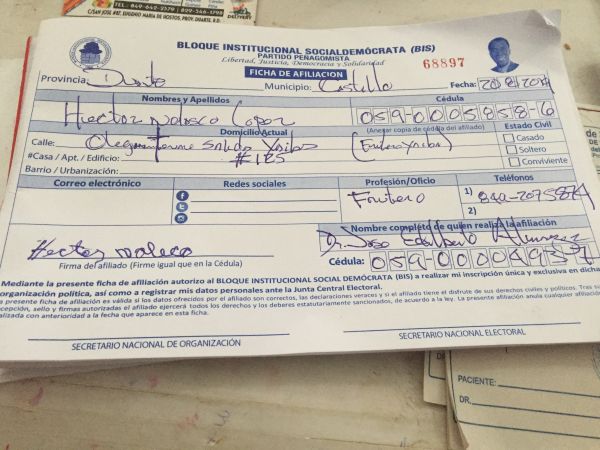 TEL.: 849-642-2579 / 829-546-1798
C/SAN JOSE #87, EUGENIO MARIA DE HOSTOS, PROV. DUARTE, R.D.
DELIVERY
BLOQUE INSTITUCIONAL SOCIALDEMÓCRATA (BIS)
PARTIDO PEÑAGOMISTA
Libertad, Justicia, Democracia y Solidaridad
68897
FICHA DE AFILIACION
Provincia: Duarte Municipio: Castillo Fecha:
Nombres y Apellidos Cédula
Hector Nolasco Lopez 059-0005858-6
Domicilio Actual (Anexar copia de cédula del afiliado) Estado Civil
Calle:
#Casa / Apt. / Edificio: #125
Barrio / Urbanización:
Casado
Soltero
Conviviente
Correo electrónico Redes sociales Profesión/Oficio Teléfonos
Frutero
1) 849-2075874
2)
Nombre completo de quien realiza la afiliación
Dr. Jose Edilberto
Hector Nolasco
Firma del afiliado (Firme igual que en la Cédula)
Cédula: 059-0000493-7
Mediante la presente ficha de afiliación autorizo al BLOQUE INSTITUCIONAL SOCIAL DEMÓCRATA (BIS) a realizar mi inscripción única y exclusiva en dicha
organización política, así como a registrar mis datos personales ante la Junta Central Electoral.
presente ficha de afiliación es válida si los datos ofrecidos por el afiliado son correctos, las declaraciones veraces y si el afiliado tiene el disfrute de sus derechos civiles y políticos. Tras su
cepción, sello y firmas autorizadas el afiliado ejercerá todos los derechos y los deberes estatutariamente sancionados, de acuerdo a la ley. La presente afiliación anula cualquier afiliación
alizada con anterioridad a la fecha que aparece en esta ficha.
SECRETARIO NACIONAL DE ORGANIZACIÓN SECRETARIO NACIONAL ELECTORAL
PACIENTE:
DR.